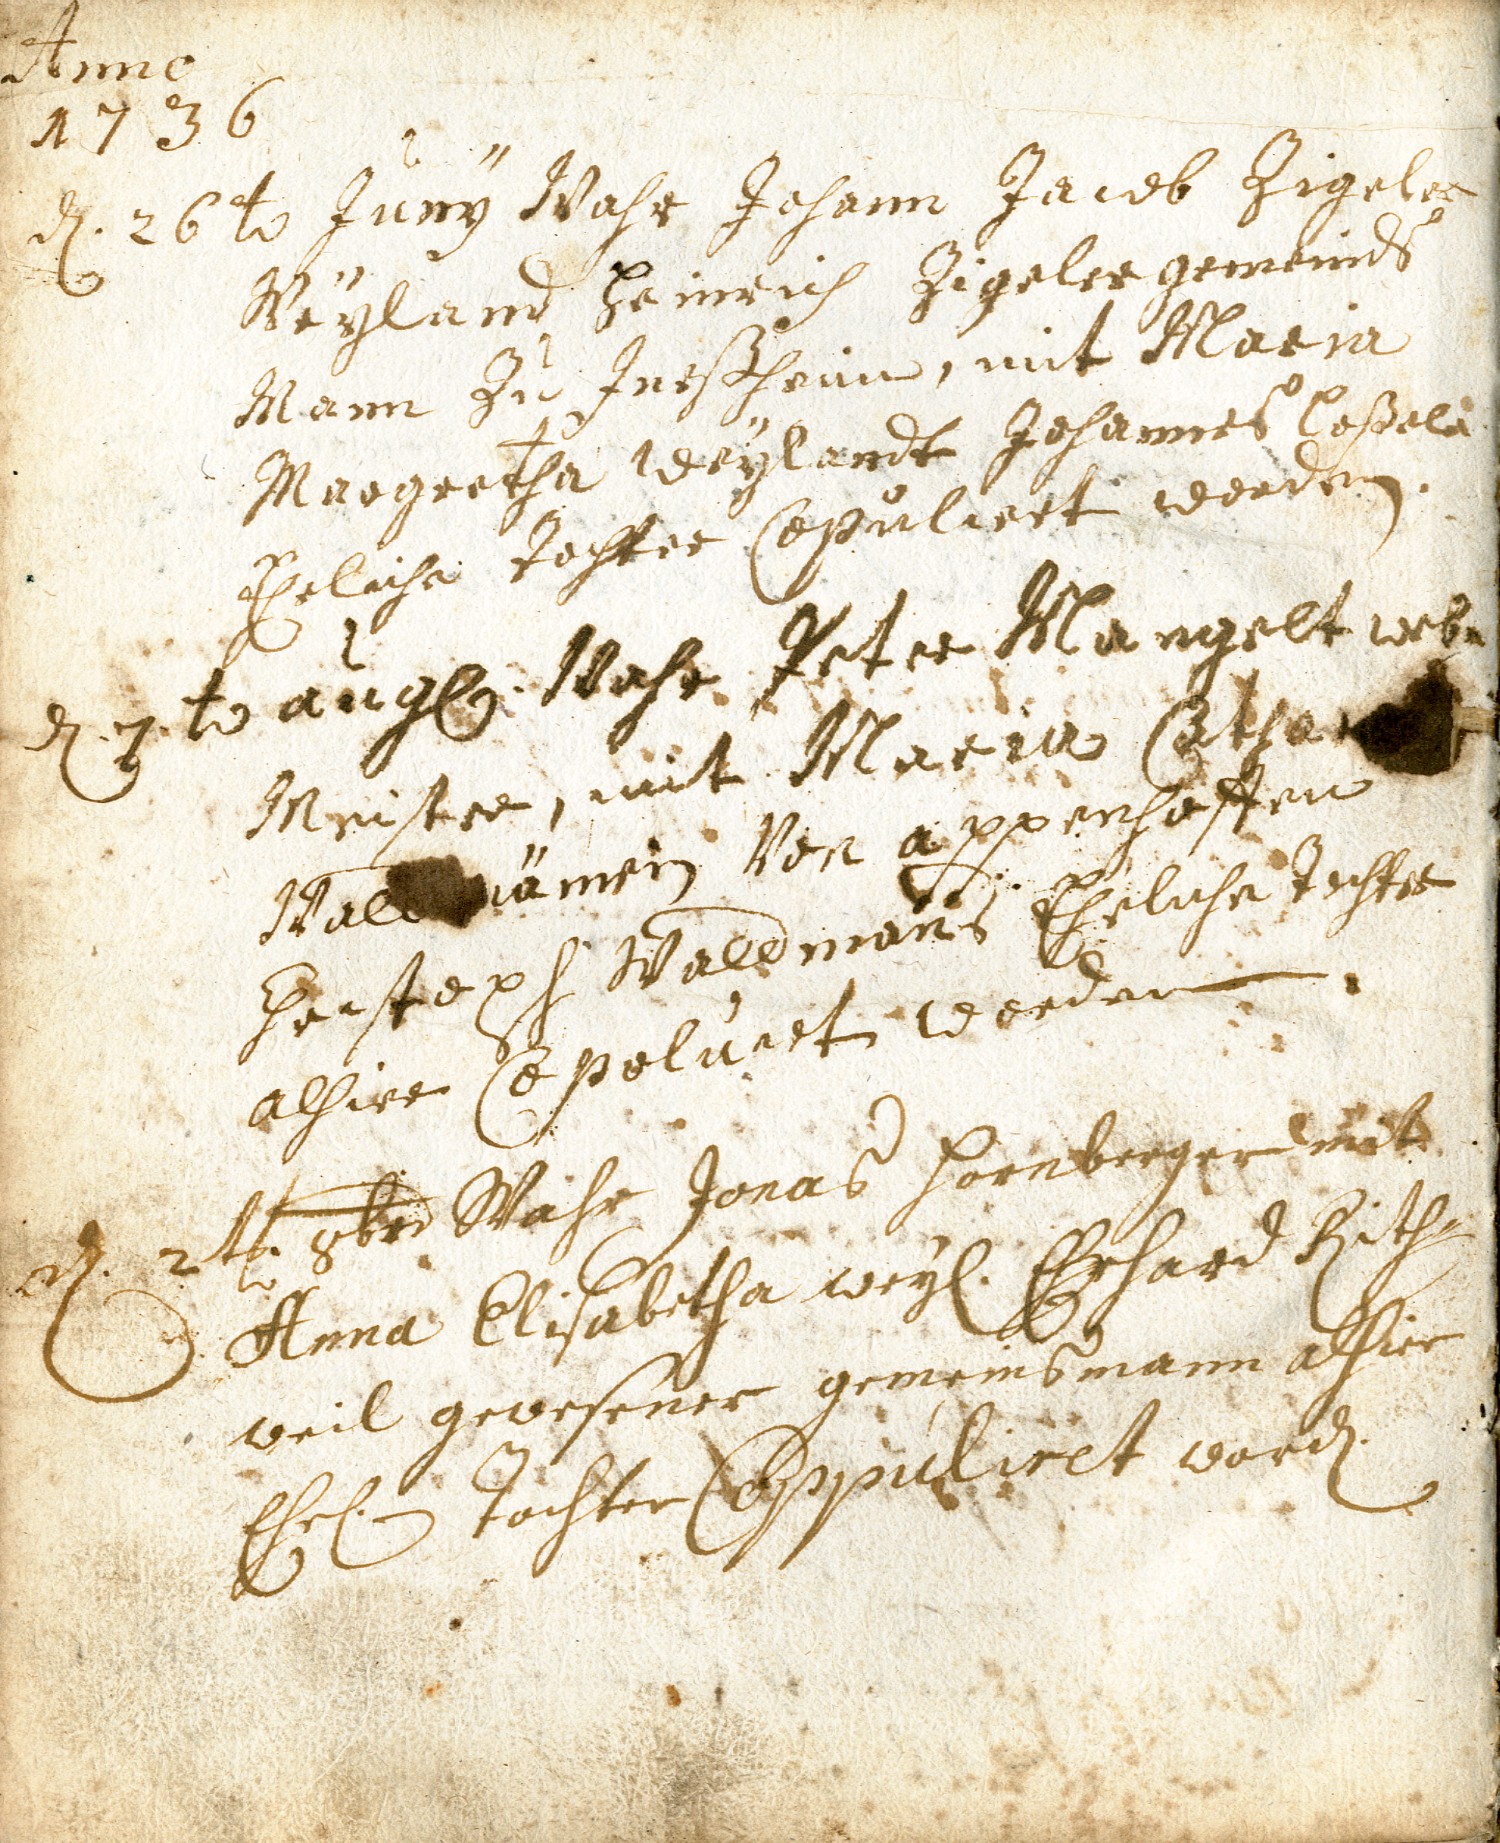 Anno
1736
d. 26to Juny Wahr Johann Jacob Zigeler
Weÿland Heinrich Zigeler gemeinds
Mann Zu Jnesheim, mit Maria
Margretha weÿlandt Johannes
Eheliche tochter Copuliert worden.
d. 7.to augl. Wahr Peter Mangelt web
Meister, mit Maria Catha
Wald mänin Von appenhoffen
Christoph Waldmans Eheliche Tochter
alhier Copoluert worden.
d. 2t. 8br Wahr Jonas Hornberger mit
Anna Elisabetha weyl. Ehrhard Hith
weil gewesener gemeinsmann alhier
Ehel. tochter Coppuliret word.